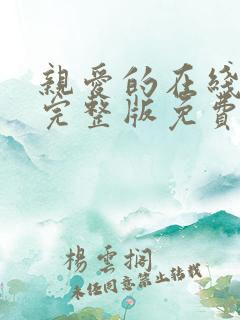 親愛的在綫
完整版免費
楊雲搁
未經同意禁止轉載